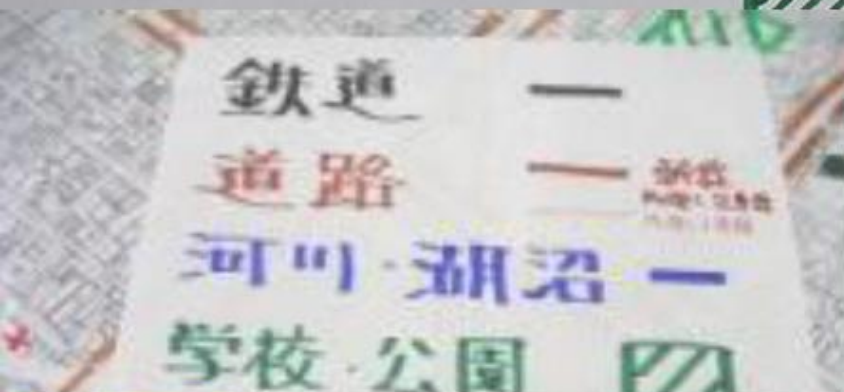 鉄道
道路
河川・湖沼
学校・公園